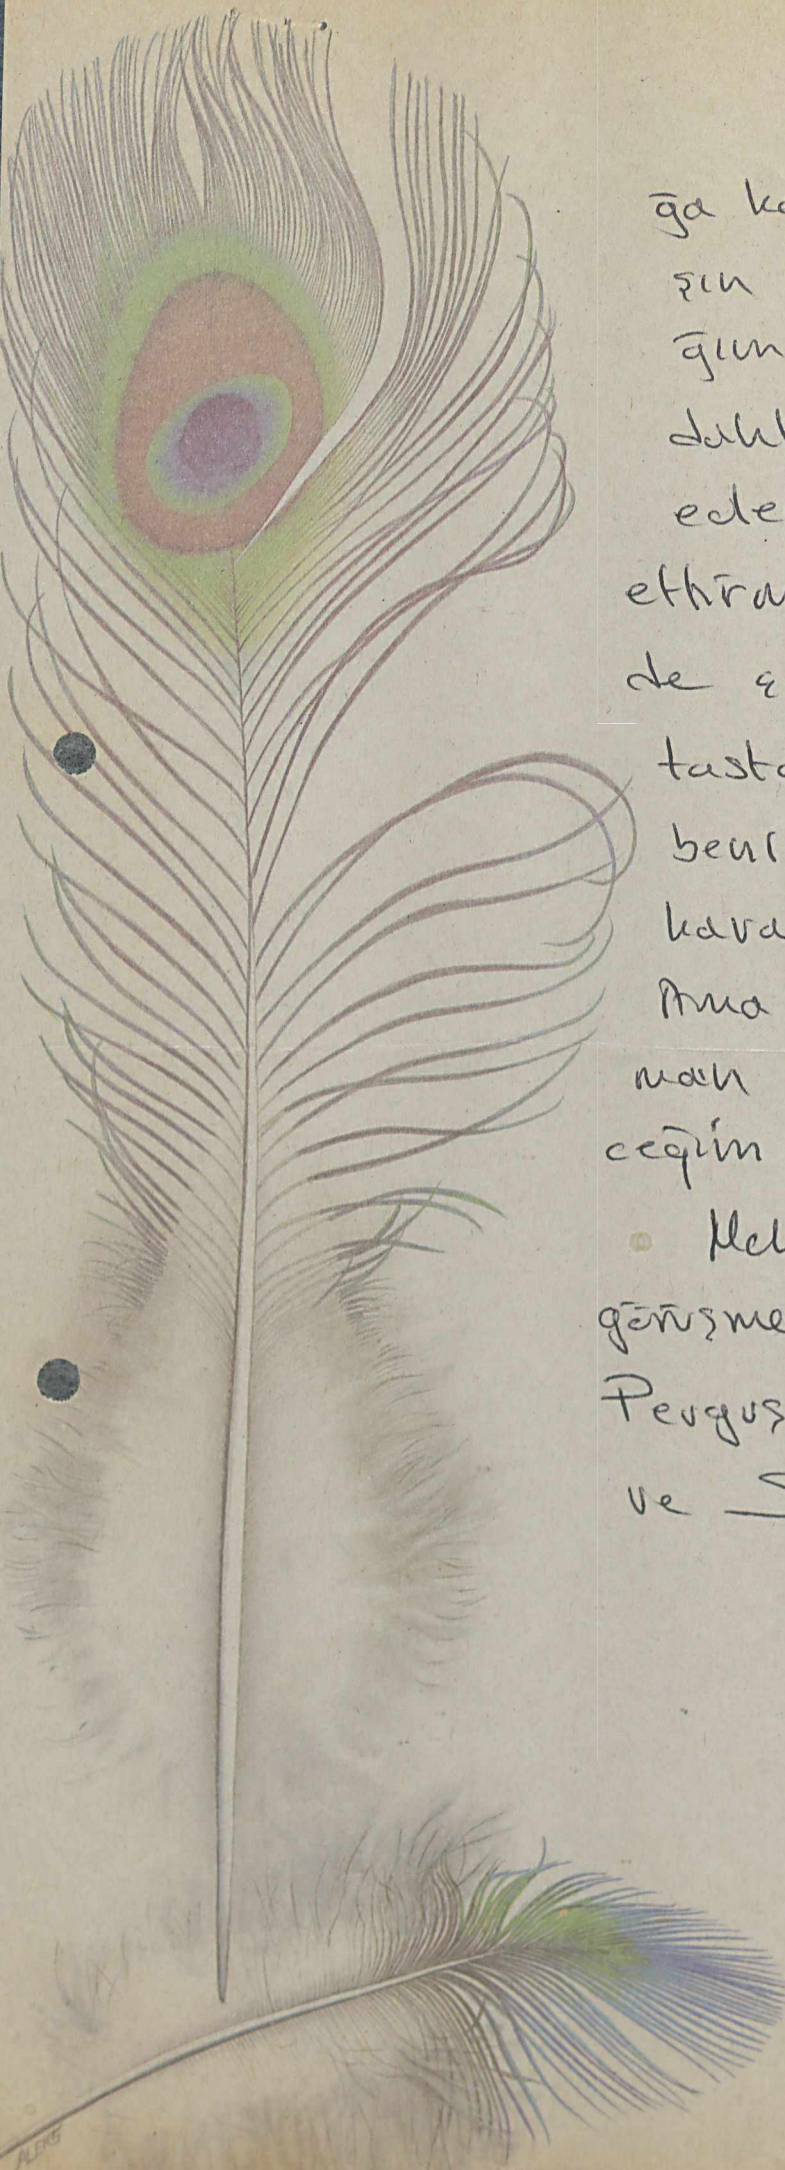 ğa ka
şın
ğım
dahi
ede
ettird
de ç
tasta
beni
kava
Ama
man
ceğim
Meh
görüşme
Perşuş
ve S
ALEKS